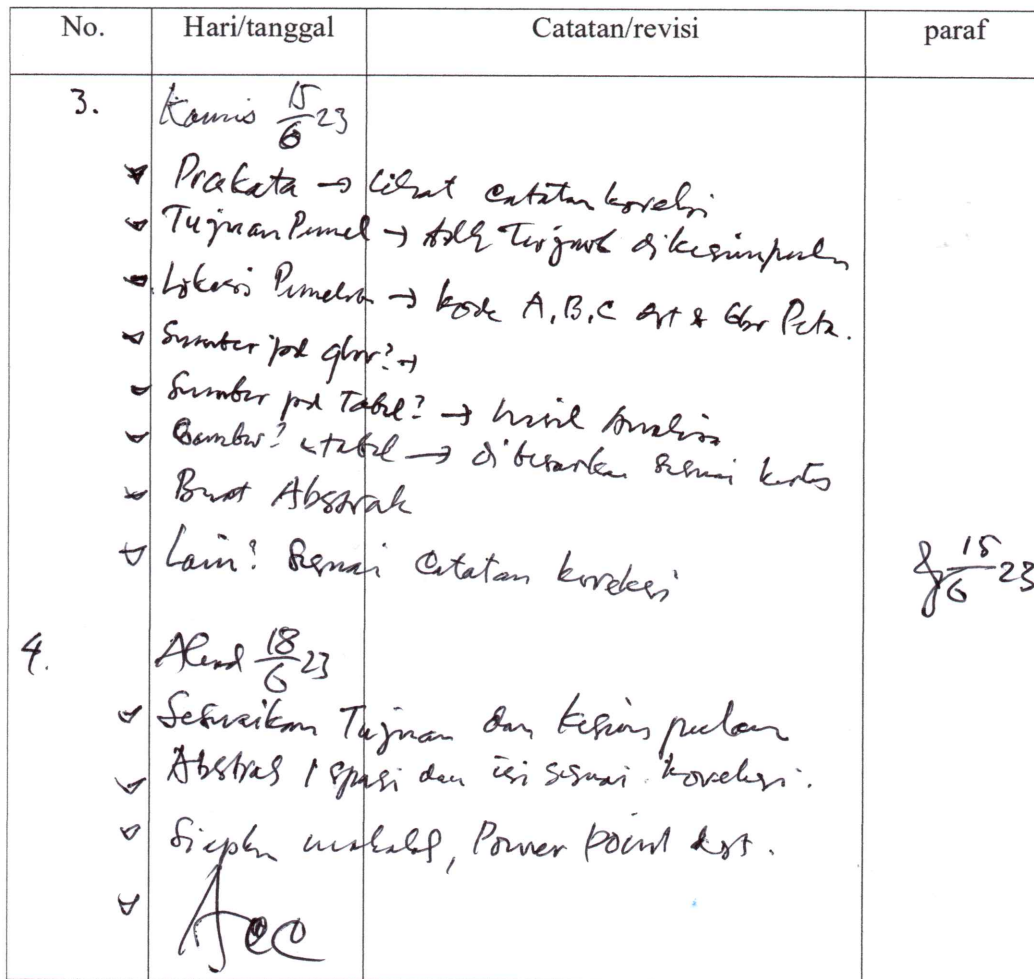 No. Hari/tanggal Catatan/revisi paraf
3. Kamis 15/6 23
Prakata → lihat catatan koreksi
Tujuan → dikesimpulan
Lokasi → kode A, B, C Peta.
Sumber pd gbr? →
Sumber pd Tabel? → hasil Analisa
Gambar? tabel → dibesarkan sesuai kertas
Buat Abstrak
Lain? Sesuai Catatan koreksi
15/6 23
4. Ahad 18/6 23
Sesuaikan Tujuan dan Kesimpulan
Abstrak 1 spasi dan isi sesuai koreksi.
Siapkn makalah, Power Point dst.
Acc